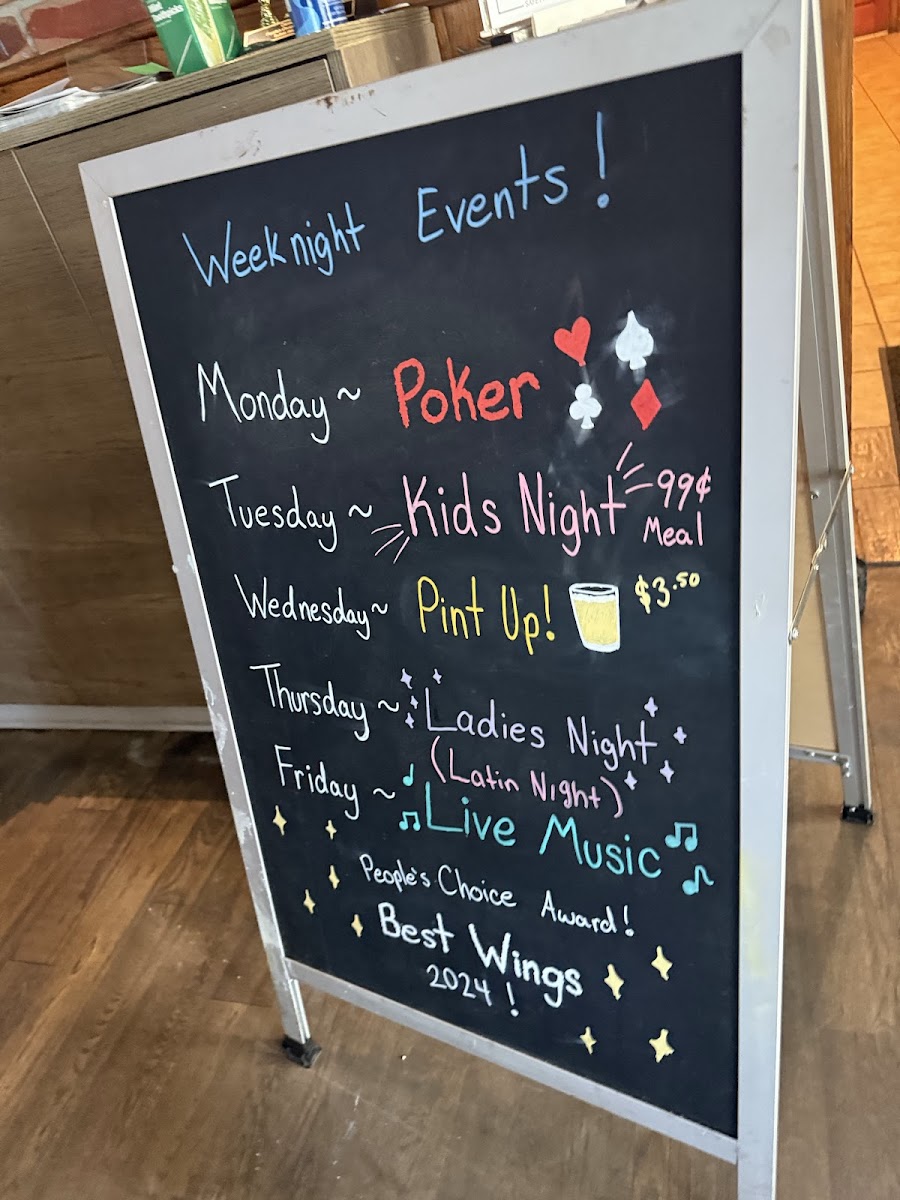 Weeknight Events!
Monday ~ Poker
Tuesday ~ Kids Night 99¢
Meal
Wednesday ~ Pint Up! $3.50
Thursday ~ Ladies Night
(Latin Night)
Friday ~ Live Music
People's Choice Award!
Best Wings
2024!